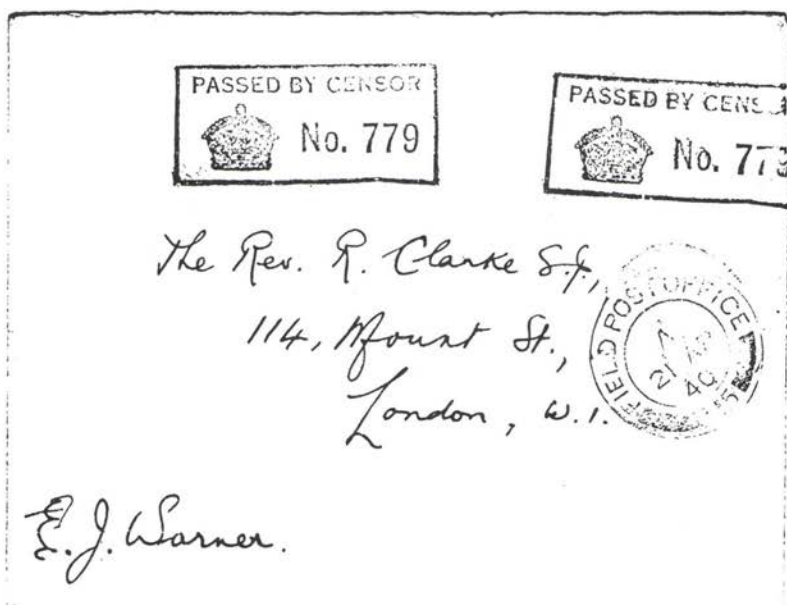 PASSED BY CENSOR
No. 779
PASSED BY CENS
No. 779
The Rev. R. Clarke S.J.,
114, Mount St.,
London, W.1.
FIELD POST OFFICE
AP
40
E. J. Warner.